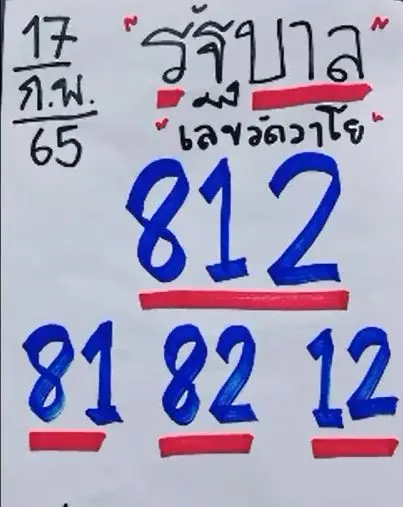 17
ก.พ.
65
"รัฐบาล"
"เลขวัดวาโย"
812
81 82 12